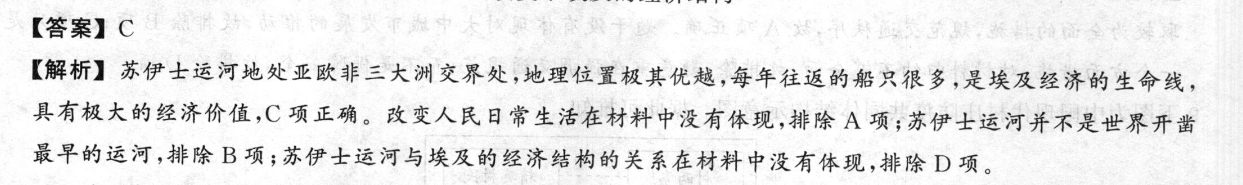 【答案】C
【解析】苏伊士运河地处亚欧非三大洲交界处,地理位置极其优越,每年往返的船只很多,是埃及经济的生命线,
具有极大的经济价值,C 项正确。改变人民日常生活在材料中没有体现,排除 A 项;苏伊士运河并不是世界开凿
最早的运河,排除 B 项;苏伊士运河与埃及的经济结构的关系在材料中没有体现,排除 D 项。